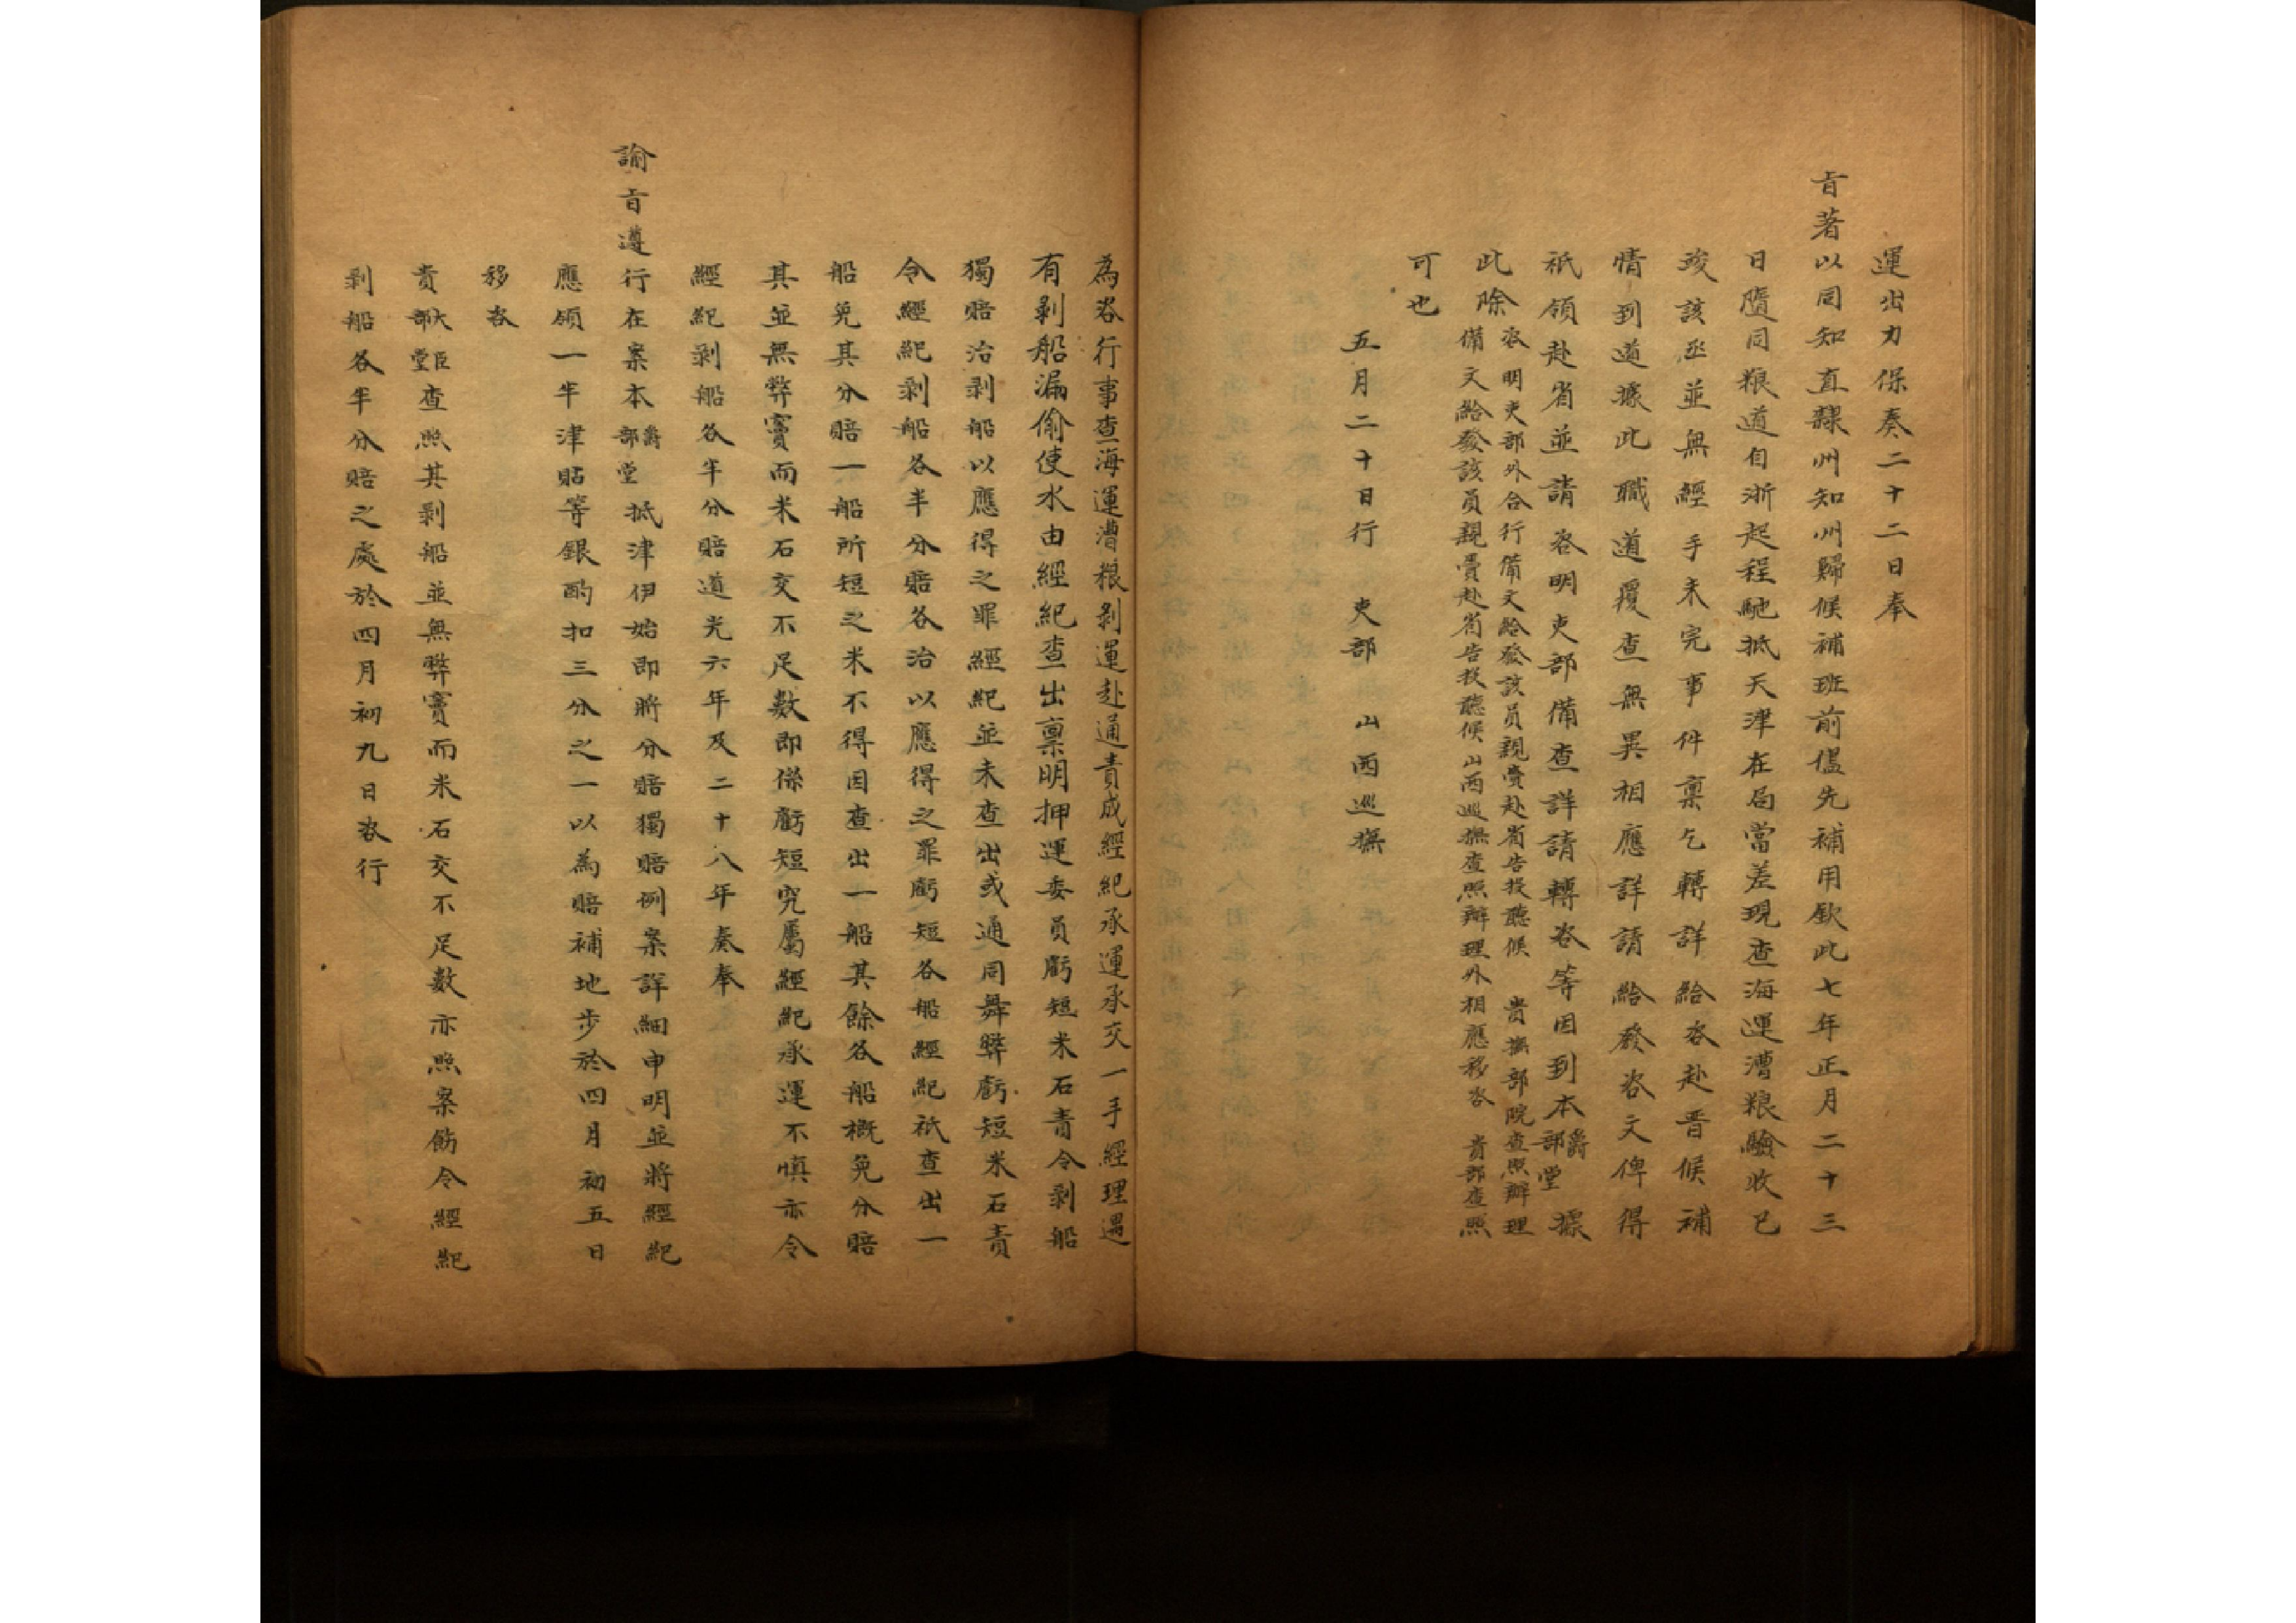 運出力保奏二十二日奉
旨著以同知直隸州知州歸候補班前儘先補用欽此七年正月二十三
日隨同粮道自浙起程馳抵天津在局當差現查海運漕粮驗收已
竣該丞並無經手未完事件稟乞轉詳給咨赴晋候補
情到道據此職道覆查無異相應詳請給發咨文俾得
祇領赴省並請咨明吏部備查詳請轉咨等因到本爵部堂據
此除咨明吏部外合行備文給發該員親賫赴省告投聽候 貴撫部院查照辦理
備文給發該員親賫赴省告投聽候山西巡撫查照辦理外相應移咨 貴部查照
可也
五月二十日行 吏部 山西巡撫
為咨行事查海運漕粮剥運赴通責成經紀承運承交一手經理遇
有剥船漏偷使水由經紀查出稟明押運委員虧短米石責令剥船
獨賠治剥船以應得之罪經紀並未查出或通同舞弊虧短米石責
令經紀剥船各半分賠各治以應得之罪虧短各船經紀祇查出一
船免其分賠一船所短之米不得因查出一船其餘各船概免分賠
其並無弊竇而米石交不足數即係虧短究屬經紀承運不慎亦令
經紀剥船各半分賠道光六年及二十八年奏奉
諭旨遵行在案本爵部堂抵津伊始即將分賠獨賠例案詳細申明並將經紀
應領一半津貼等銀酌扣三分之一以為賠補地步於四月初五日
移咨
貴大臣部堂查照其剥船並無弊竇而米石交不足數亦照案飭令經紀
剥船各半分賠之處於四月初九日咨行